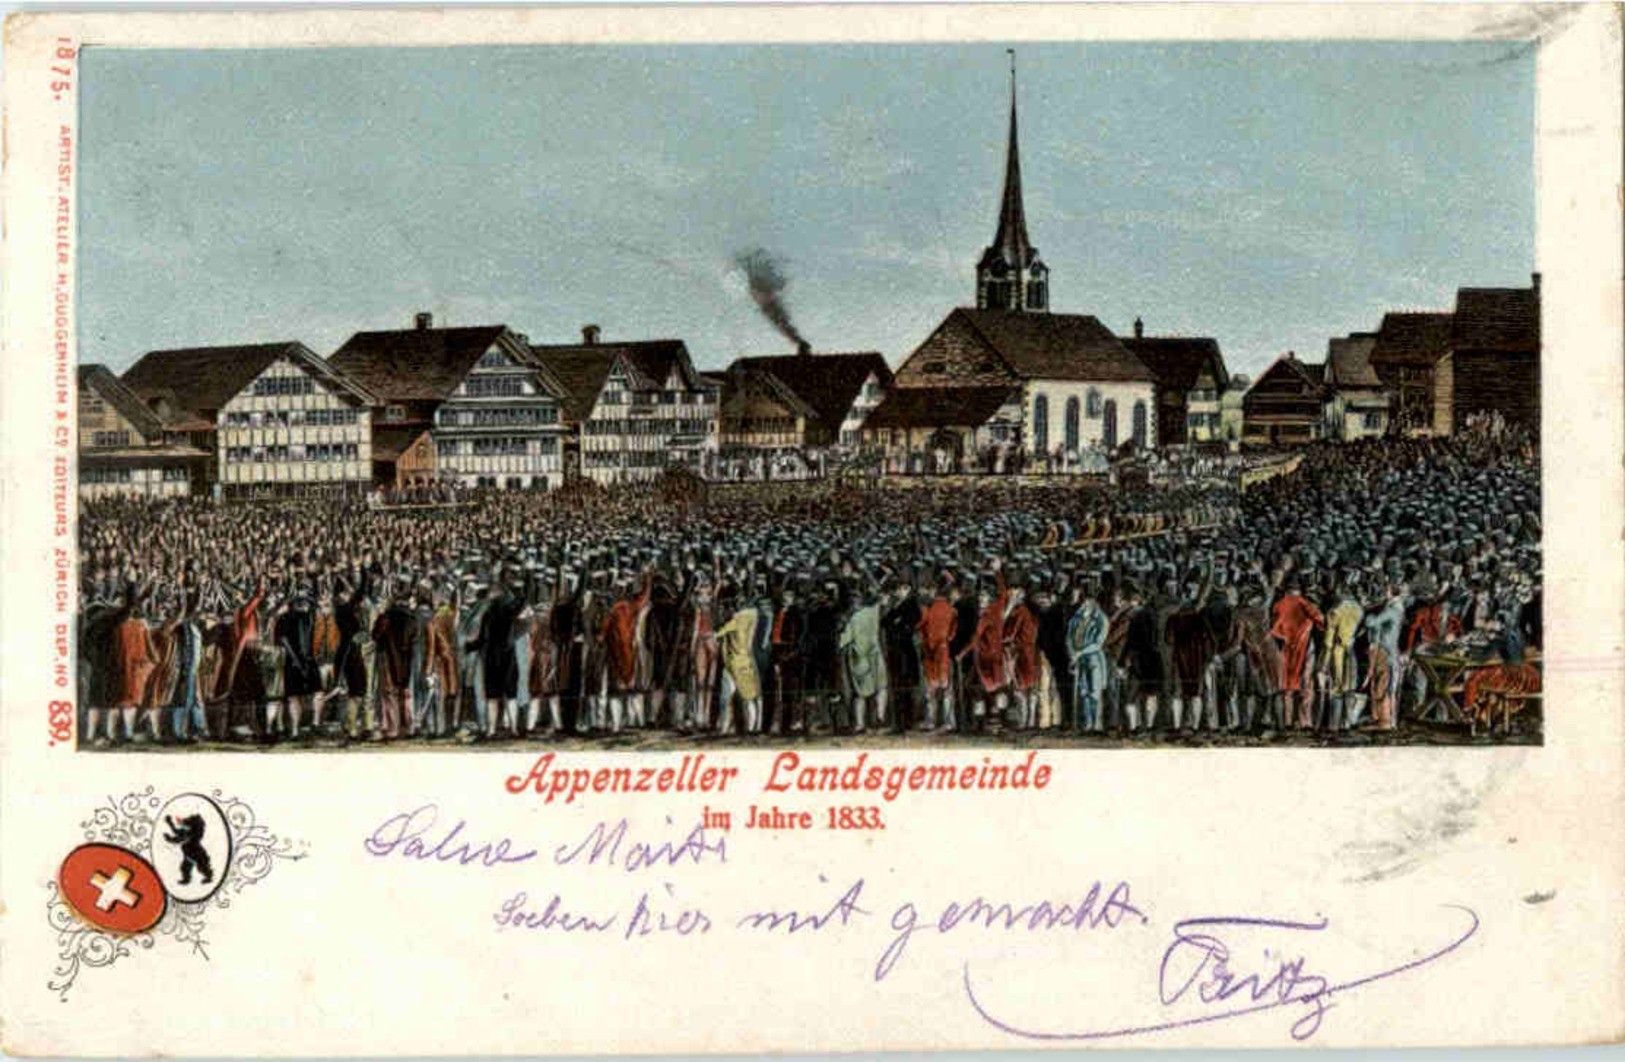 1875. ARTIST. ATELIER H. GUGGENHEIM & Cº. EDITEURS ZÜRICH DEP. NO 839.
Appenzeller Landsgemeinde
im Jahre 1833.
Salve
Soeben hier mit gemacht.